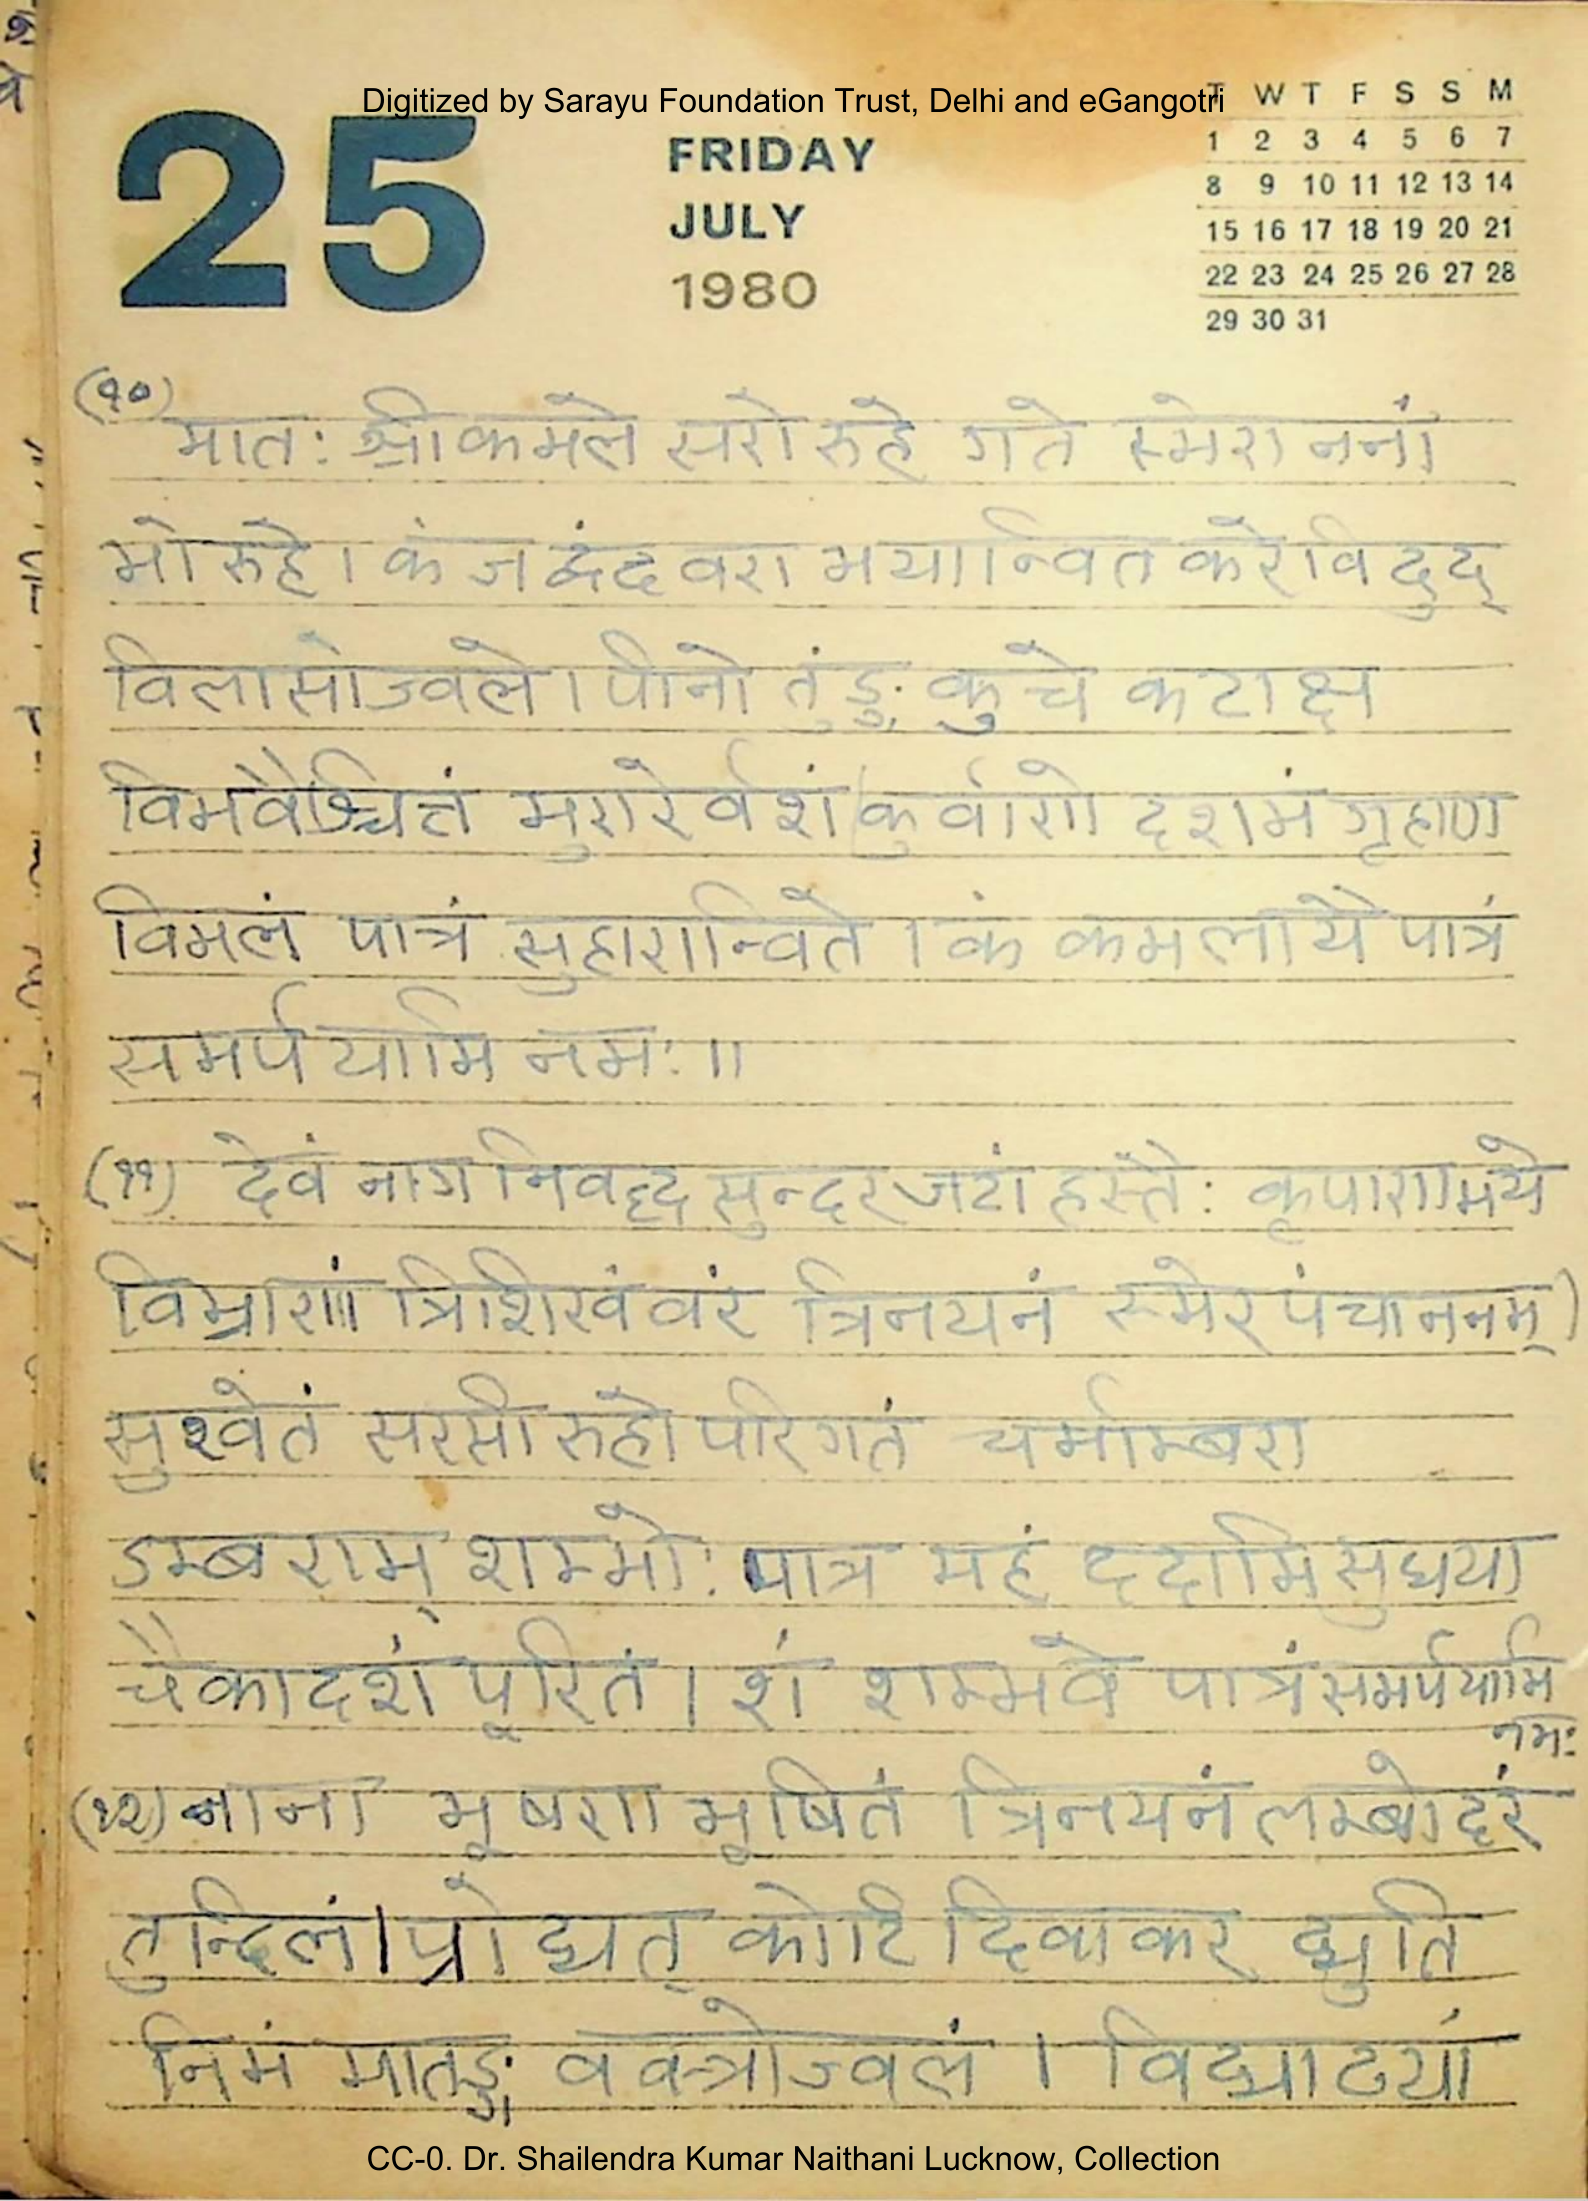 Digitized by Sarayu Foundation Trust, Delhi and eGangotri
25
FRIDAY
JULY
1980
T W T F S S M
1 2 3 4 5 6 7
8 9 10 11 12 13 14
15 16 17 18 19 20 21
22 23 24 25 26 27 28
29 30 31
(१०) मातः श्रीकमले सरोरुहे गते स्मेराननां
भोरुहे । कं ज द्वंद वरा भयान्वित करे विदुद्
विलासोज्वले । पीनो तुंङ्ग कुचे कटाक्ष
विभवैश्चित्तं मुरारेर्वशं कुर्वाणे दशमं गृहाण
विमलं पात्रं सुहारान्विते । कं कमलायै पात्रं
समर्पयामि नमः ॥
(११) देवं नाग निवद्द सुन्दर जटां हस्तैः कृपाणाभये
विभ्राणां त्रिशिखं वरं त्रिनयनं स्मेर पंचाननम् ।
सुश्वेतं सरसीरुहोपरिगतं चर्माम्बरा
डम्बराम् शम्भोः पात्र महं ददामि सुधया
चैकादशं पूरितं । शं शम्भवे पात्रं समर्पयामि
नमः
(१२) नाना भूषण भूषितं त्रिनयनं लम्बोदरं
तुन्दिलं । प्रोद्यत् कोटि दिवाकर द्युति
निभं मातङ्ग वक्त्रोज्वलं । विद्याढयां
CC-0. Dr. Shailendra Kumar Naithani Lucknow, Collection